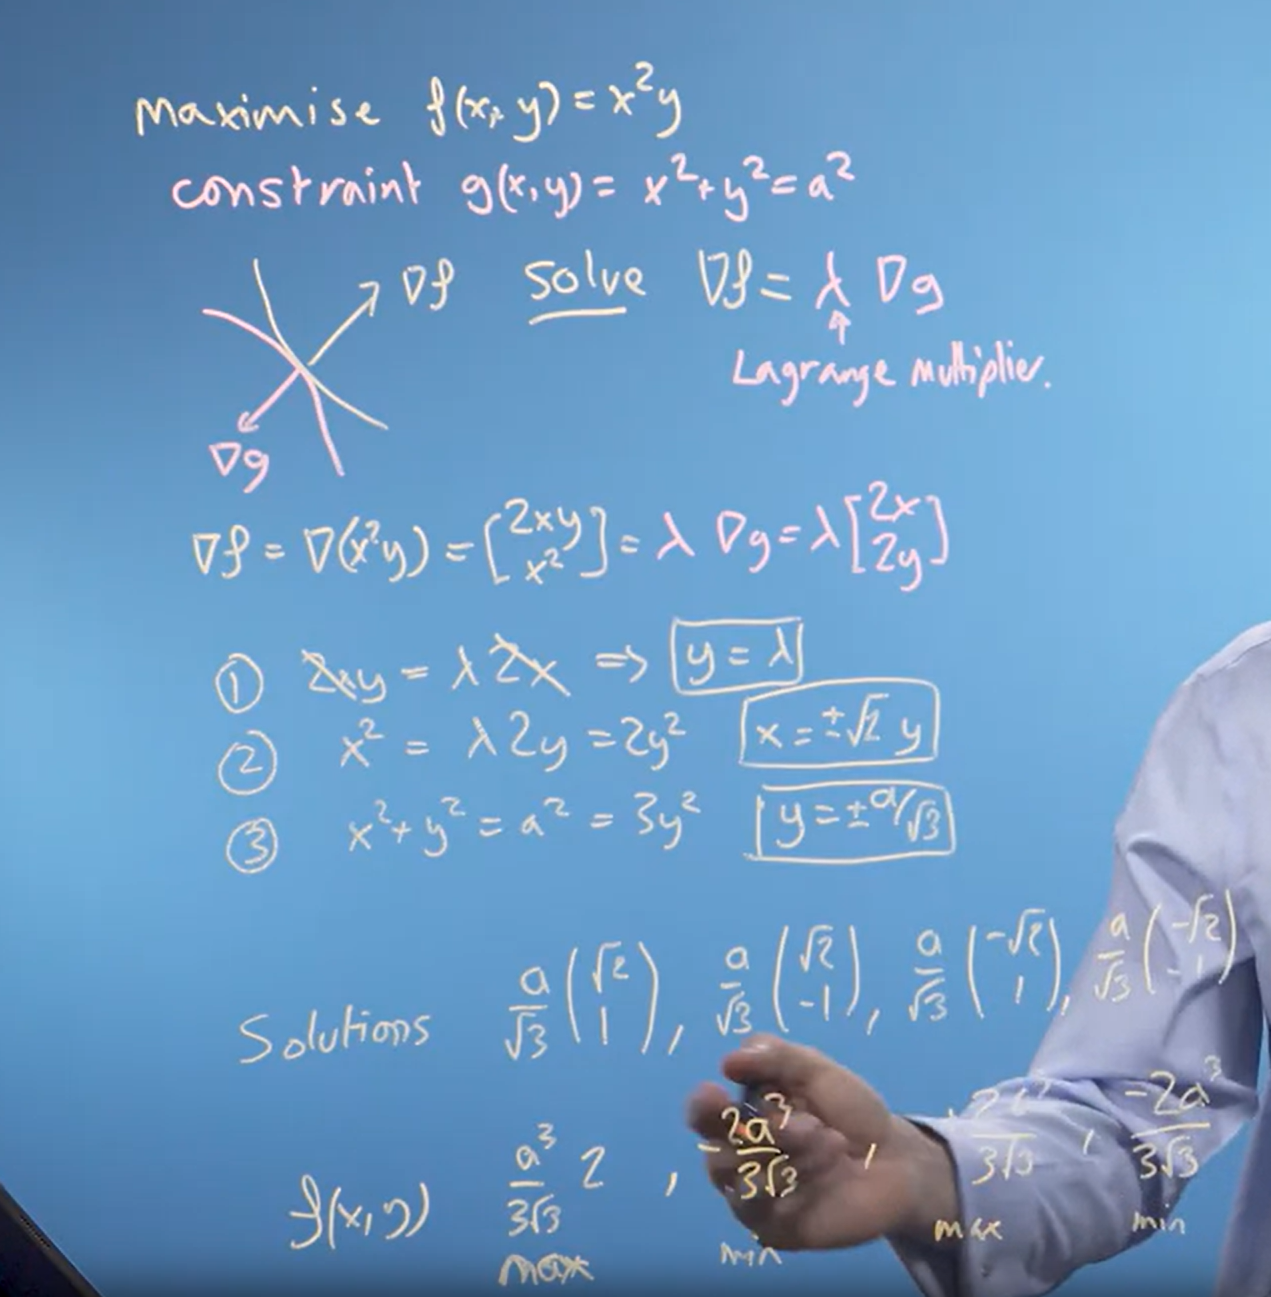 Maximise f(x, y) = x²y
constraint g(x,y) = x²+y²=a²
∇f solve ∇f = λ ∇g
Lagrange Multiplier.
∇g
∇f = ∇(x²y) = [2xy x²] = λ ∇g = λ[2x 2y]
① 2xy = λ2x ⇒ y = λ
② x² = λ2y = 2y² x = ±√2 y
③ x²+y² = a² = 3y² y = ±a/√3
Solutions a/√3 (√2 1), a/√3 (√2 -1), a/√3 (-√2 1), a/√3 (-√2 -1)
f(x,y) a³/3√3 2, -2a³/3√3, 2a³/3√3, -2a³/3√3
max min max min